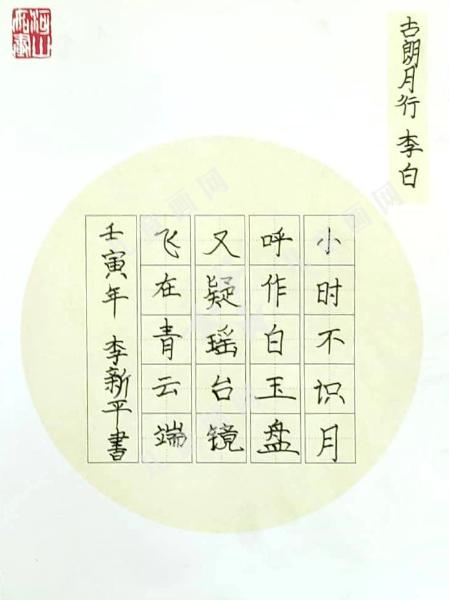 古朗月行 李白
小时不识月
呼作白玉盘
又疑瑶台镜
飞在青云端
壬寅年 李新平書